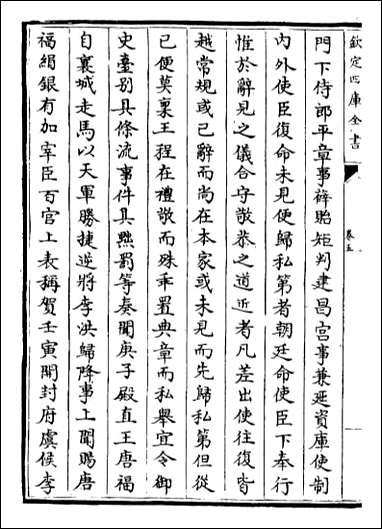 欽定四庫全書
卷五
門下侍郎平章事薛貽矩判建昌宫事兼延資庫使制
内外使臣復命未見便歸私第者朝廷命使臣下奉行
惟於辭見之儀合守敬恭之道近者凡差出使往復皆
越常規或已辭而尚在本家或未見而先歸私第但從
已便莫稟王程在禮敬而殊乖置典章而私舉宜令御
史臺别具條流事件具黙罰等奏聞庚子殿直王唐福
自襄城走馬以天軍勝捷逆將李洪歸降事上聞賜唐
福絹銀有加宰臣百官上表稱賀壬寅開封府虞候李